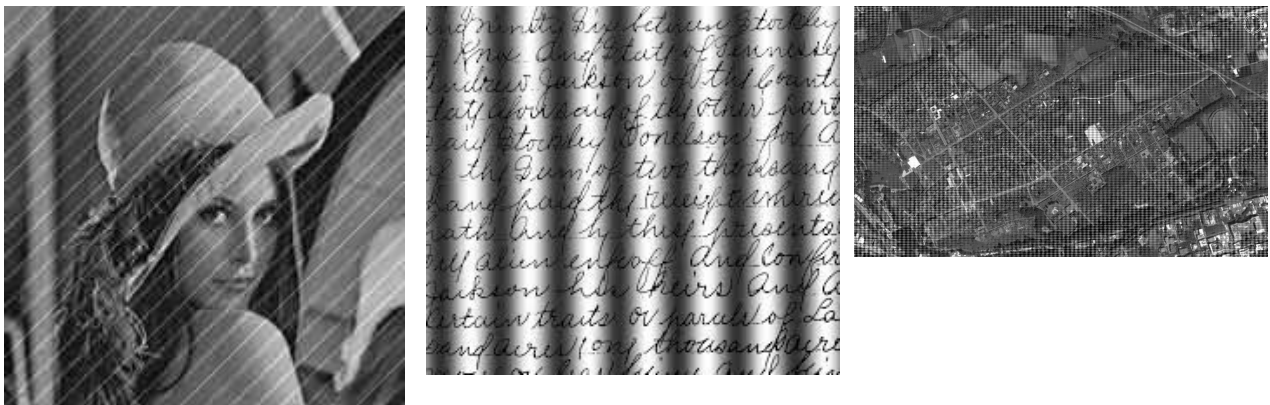 and ninity Six between Stockley
Knox And State of Tennessy
Andrew Jackson of the County
State aforesaid of the other part
said Stockley Donelson for A
of the Sum of two thousand
hand paid the receipt
hath And by these presents
alien enfeoff And confir
Jackson his heirs And A
Certain traits or parcels of La
sand acres one thousand acre